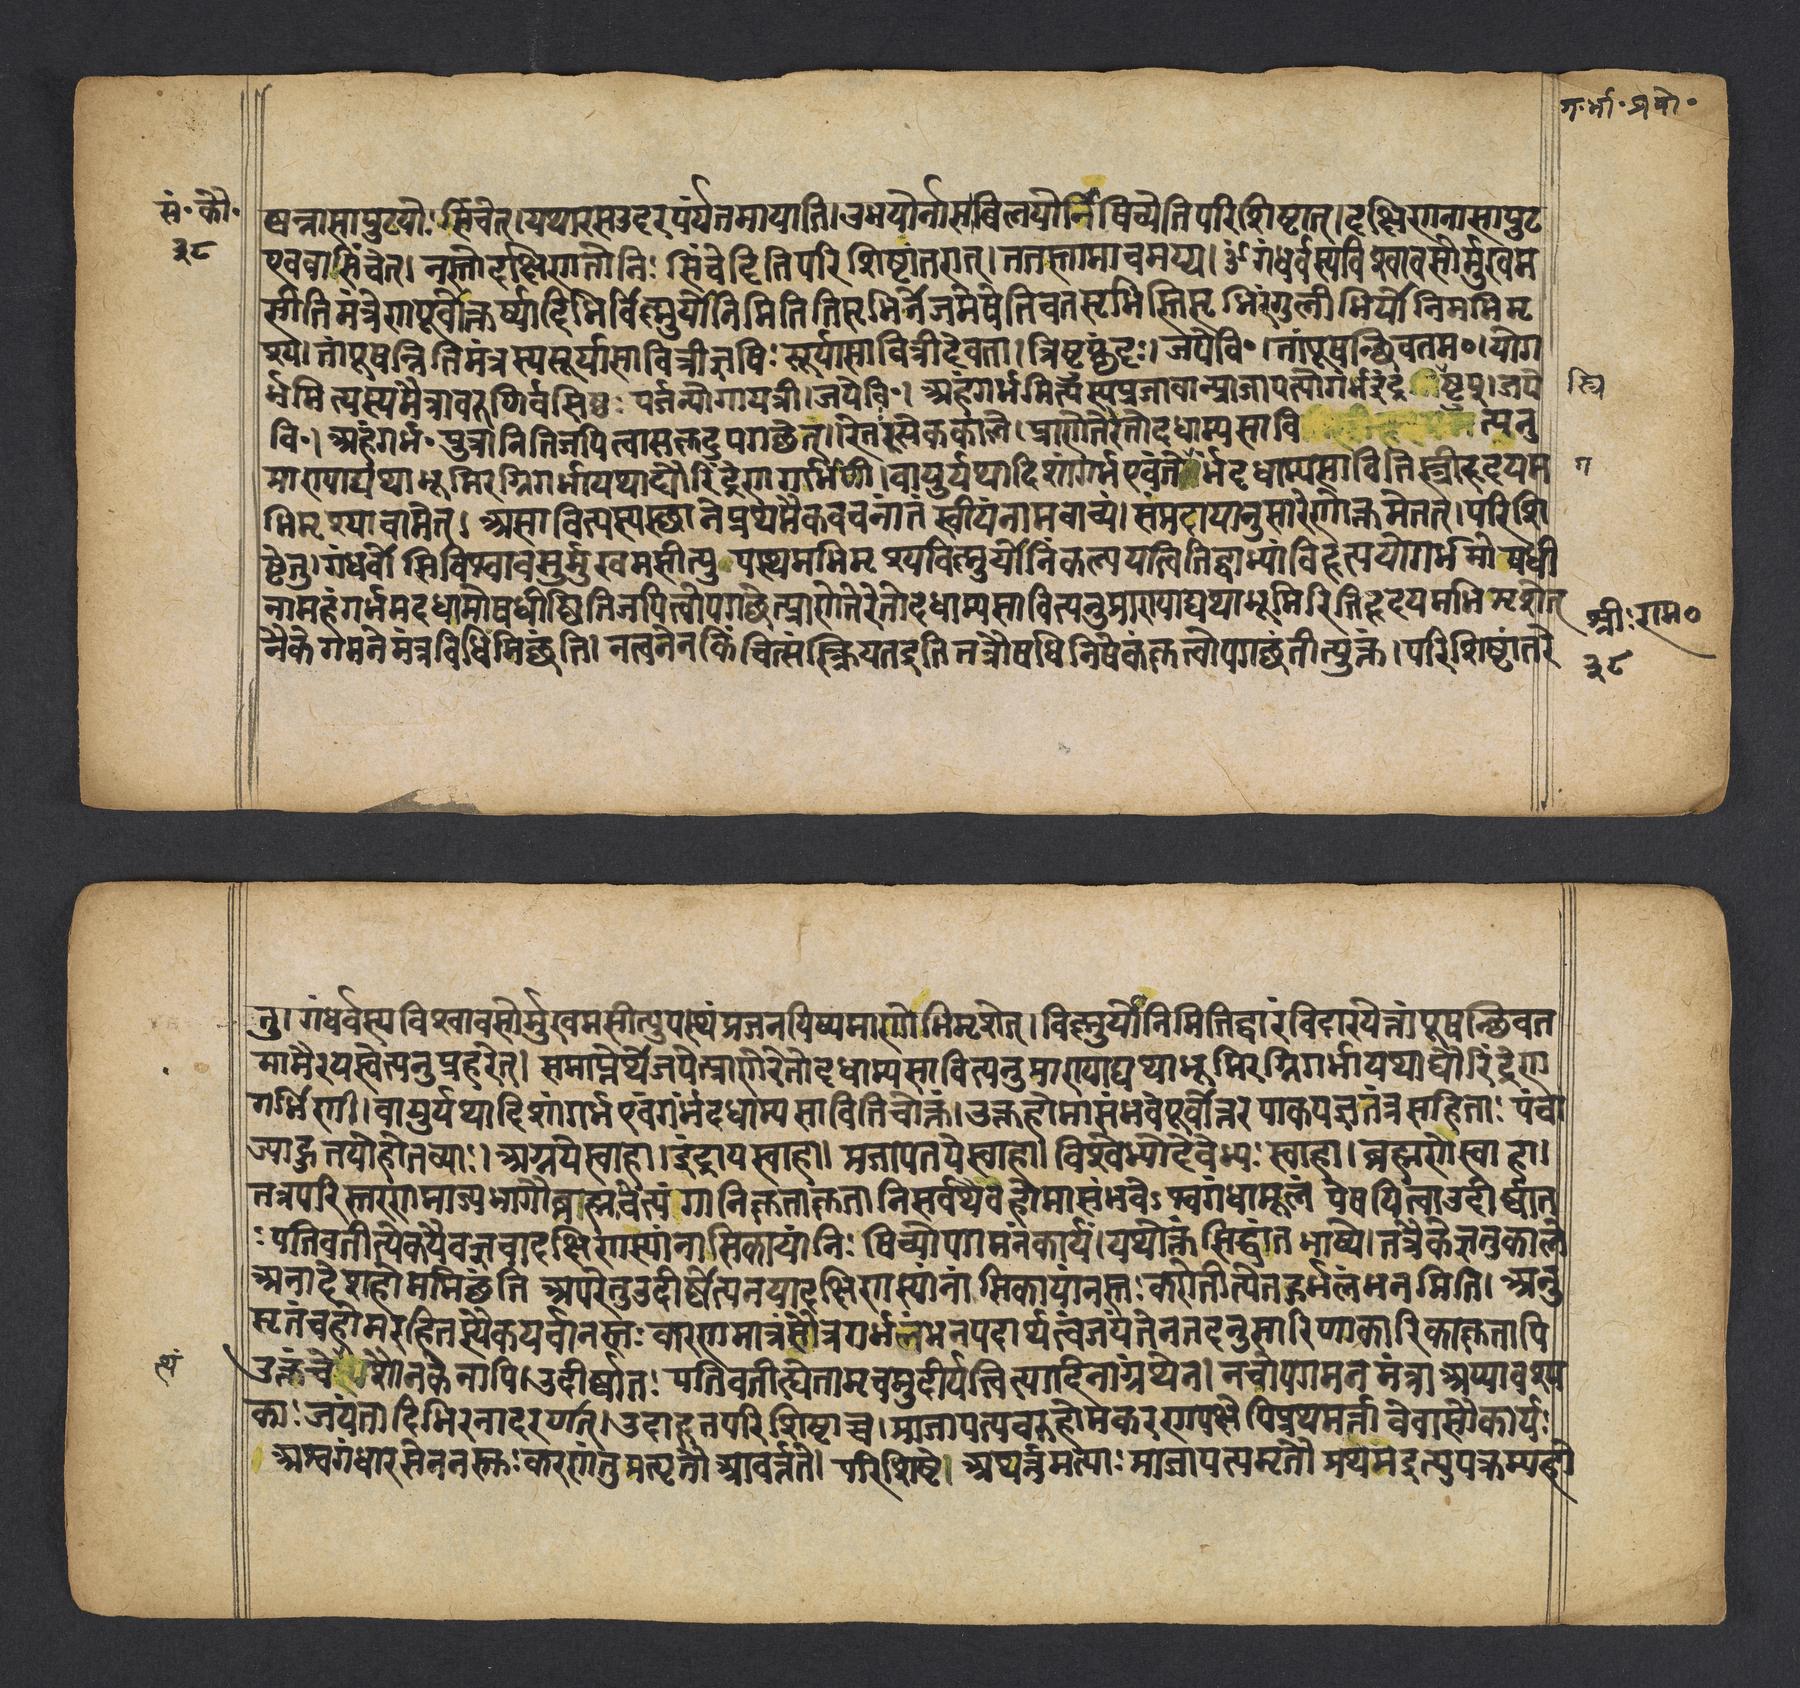 ग॰र्भा॰प्रयो॰
सं॰कौ॰
३८
ष्वन्नासापुटयोः सिंचेत्।यथारसउदरपर्यंतमायाति।उभयोर्नासाबिलयोर्निषिच्येतिपरिशिष्टात्।दक्षिणनासापुट
एववासिंचेत्। नस्तोदक्षिणतोनिः सिंचेदितिपरिशिष्टांतरात्।ततस्तामाचमय्य।ॐगंधर्वस्यविश्वावसोर्मुखम
सीतिमंत्रेणपूर्वोक्तर्ष्यादिभिर्विष्णुर्योनिमितितिसृभिर्नेजमेषेतिचतसृभिस्तिसृभिरंगुलीभिर्योनिमभिमृ
श्य।तांपूषन्नितिमंत्रस्यसूर्यासावित्रीऋषिः सूर्यासावित्रीदेवता।त्रिष्टुप्छंदः।जपेवि॰।तांपूषन्छिवतम॰।योग
र्भमित्यस्यमैत्रावरुणिर्वसिष्ठः पर्जन्योगायत्री।जपेवि॰। अहंगर्भमित्यस्यप्रजावान्प्राजापत्योगर्भइंद्रस्त्रिष्टुप्।जपे
स्त्रि
वि॰।अहंगर्भ॰पुत्रानितिजपित्वासकृदुपगच्छेत्।रेतःसेककाले।प्राणेतेरेतोदधाम्यसावि त्यनु
प्राणयाद्यथाभूमिरग्निगर्भायथाद्यौरिंद्रेणगर्भिणी।वायुर्यथादिशांगर्भएवंतेगर्भंदधाम्यसावितिस्त्रीहृदयम
ग
भिमृश्याचामेत्। असावित्यस्यस्थानेप्रथमैकवचनांतं स्त्रीयंनामवाच्यं।संप्रदायानुसारेणोक्तमेतत्।परिशि
ष्टेतु।गंधर्वोसिविश्वावसुर्मुखमसीत्युपस्थमभिमृश्यविष्णुर्योनिंकल्पयत्वितिद्वाभ्यांविहृत्ययोगर्भमोषधी
नामहंगर्भमदधामोषधीष्वितिजपित्वोपगच्छेत्प्राणेतेरेतोदधाम्यसावित्यनुप्राण्याद्यथाभूमिरितिहृदयमभिमृशेत्
नैकेगमनेमंत्रविधिमिच्छंति। नत्वनेनकिंचित्संस्क्रियतइति तत्रौषधिनिषेकंकृत्वोपगच्छंतीत्युक्तं।परिशिष्टांतरे
श्रीःराम०
३८
तु। गंधर्वस्यविश्वावसोर्मुखमसीत्युपस्थंप्रजनयिष्यमाणोभिमृशेत्।विष्णुर्योनिमितिद्वारंविदारयेत्तांपूषन्छिवत
मामैरयस्वेत्यनुप्रहरेत्। समाप्तेर्थेजपेत्प्राणेरेतोदधाम्यसावित्यनुप्राणयाद्यथाभूमिरग्निगर्भायथाद्यौरिंद्रेण
गर्भिणी।वायुर्यथादिशांगर्भएवंगर्भंदधाम्यसावितिचोक्तं।उक्तहोमासंभवेपूर्वोत्तरपाकयज्ञतंत्रसहिताः पंचा
ज्याहुतयोहोतव्याः।अग्नयेस्वाहा।इंद्रायस्वाहा। प्रजापतयेस्वाहा। विश्वेभ्योदेवेभ्यः स्वाहा। ब्रह्मणेस्वाहा।
तत्रपरिस्तरणमाज्यभागौब्राह्मंचेत्यंगानिकृताकृतानिसर्वथैवहोमासंभवेऽश्वगंधामूलं पेषयित्वाउदीर्ष्वात
ः पतिवतीत्येकयैवऋचादक्षिणस्यांनासिकायांनिः षिच्योपगमनंकार्यं।यथोक्तंसिद्धांतभाष्ये।तत्रैकेऋतुकाले
अनादेशहोममिच्छंति अपरेतुउदीर्ष्वेत्यनयादक्षिणस्यांनासिकायांनस्तः करोतीत्येतद्गर्भलंभनमिति। अनु
सृतंचहोमरहितस्यैकयर्चानस्तः करणमात्रंसोत्रगर्भलंभनपदार्थत्वंजयंतेनतदनुसारिणाकारिकाकृतापि
त्यं
उक्तंचेत्यंशौनकेनापि।उदीर्ष्वातः पतिवतीत्येतामृचमुदीर्यत्वित्यादिनाग्रंथेन। नचोपगमनमंत्रा अप्यावश्य
काः जयंतादिभिरनादरणात्।उदाहृतपरिशिष्टाच्च।प्राजापत्यचरुहोमकरणपक्षेपिप्रथमर्तावेवासौकार्यः
अश्वगंधारसेननस्तः करणंतुप्रत्यृतौआवर्त्तते। परिशिष्टे। अथर्तुमत्याः प्राजापत्यमृतौ प्रथमइत्युपक्रम्यहो